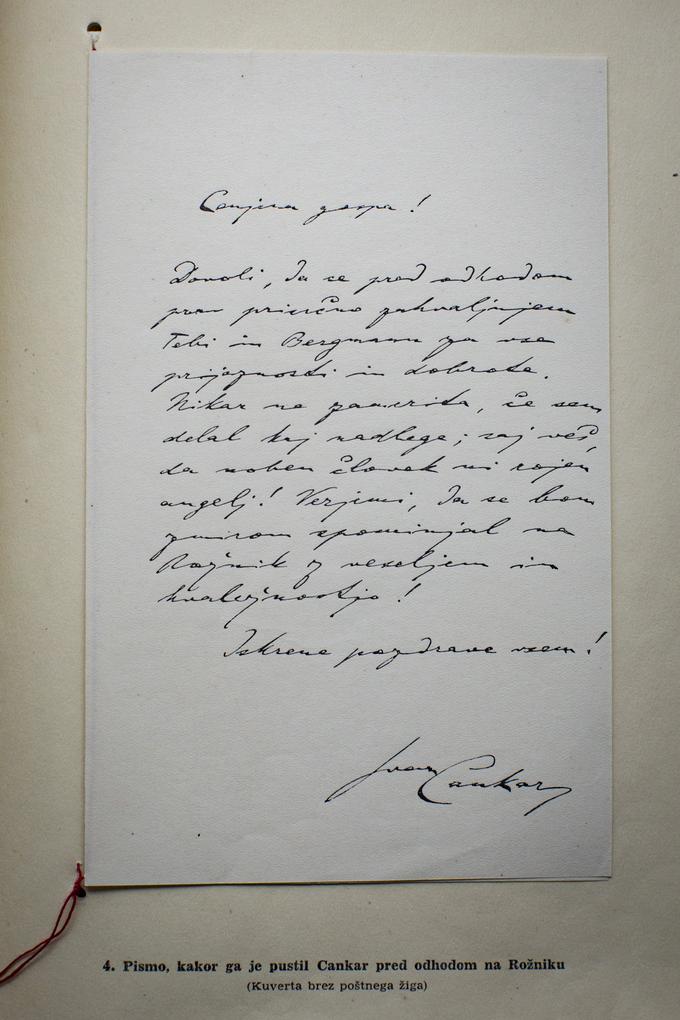 Cenjena gospa!
Dovoli, da se pred odhodom
prav prisrčno zahvaljujem
Tebi in Bergmanu za vse
prijaznosti in dobrote.
Nikar ne zamerita, če sem
delal kaj nadlege; saj veš,
da noben človek ni rojen
angelj! Verjemi, da se bom
zmirom spominjal na
Rožnik z veseljem in
hvaležnostjo!
Iskrene pozdrave vsem!
Ivan Cankar
4. Pismo, kakor ga je pustil Cankar pred odhodom na Rožniku
(Kuverta brez poštnega žiga)